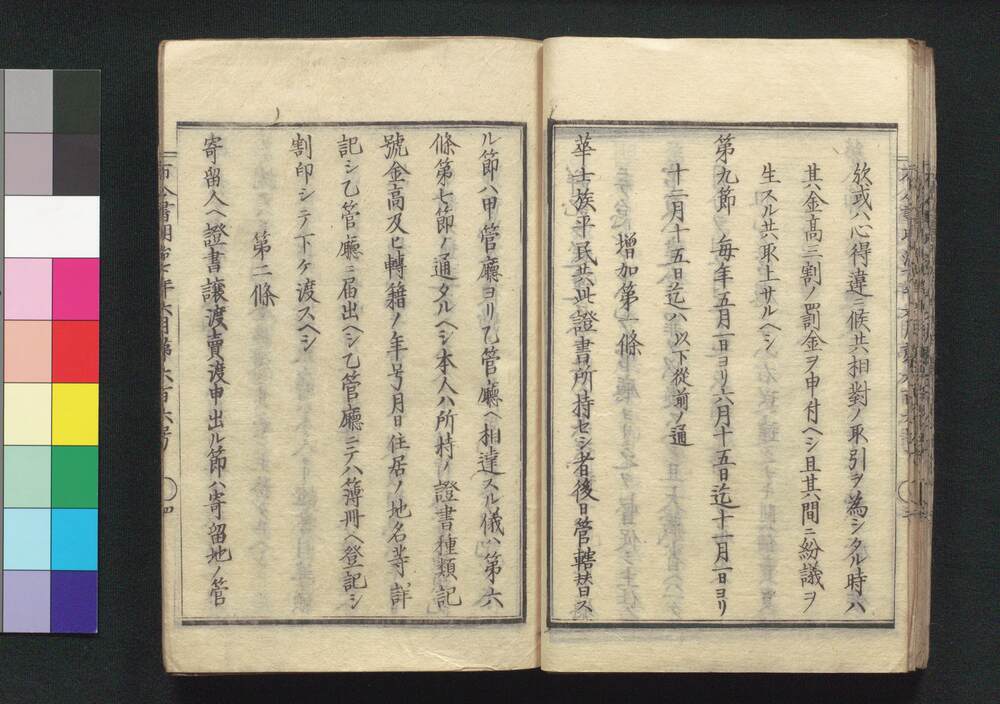 欸或ハ心得違ニ候共相對ノ取引ヲ為シタル時ハ
其金高三割ノ罰金ヲ申付ヘシ且其間ニ紛議ヲ
生スル共取上サルヘシ
第九節 毎年五月一日ヨリ六月十五日迄十一月一日ヨリ
十二月十五日迄ハ 以下從前ノ通
增加第一條
華士族平民共此證書所持セシ者後日管轄替ス
ル節ハ甲管廳ヨリ乙管廳ヘ相達スル儀ハ第六
條第七節ノ通タルヘシ本人ハ所持ノ證書種類記
號金高及ヒ轉籍ノ年号月日住居ノ地名等詳
記シ乙管廳ニ届出ヘシ乙管廳ニテハ簿冊ヘ登記シ
割印シテ下ケ渡スヘシ
第二條
寄留人ヘ證書讓渡賣渡申出ル節ハ寄留地ノ管